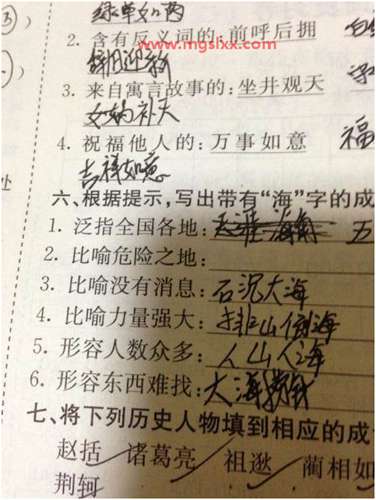 绿草如茵
www.mgslxx.com
2. 含有反义词的:前呼后拥
辞旧迎新
3. 来自寓言故事的:坐井观天
女娲补天
4. 祝福他人的:万事如意 福
吉祥如意
处
六、根据提示,写出带有“海”字的成
1. 泛指全国各地: 天涯海角 五
2. 比喻危险之地:
3. 比喻没有消息:石沉大海
4. 比喻力量强大:排山倒海
5. 形容人数众多:人山人海
6. 形容东西难找:大海捞针
七、将下列历史人物填到相应的成
赵括 诸葛亮 祖逖 蔺相如
荆轲